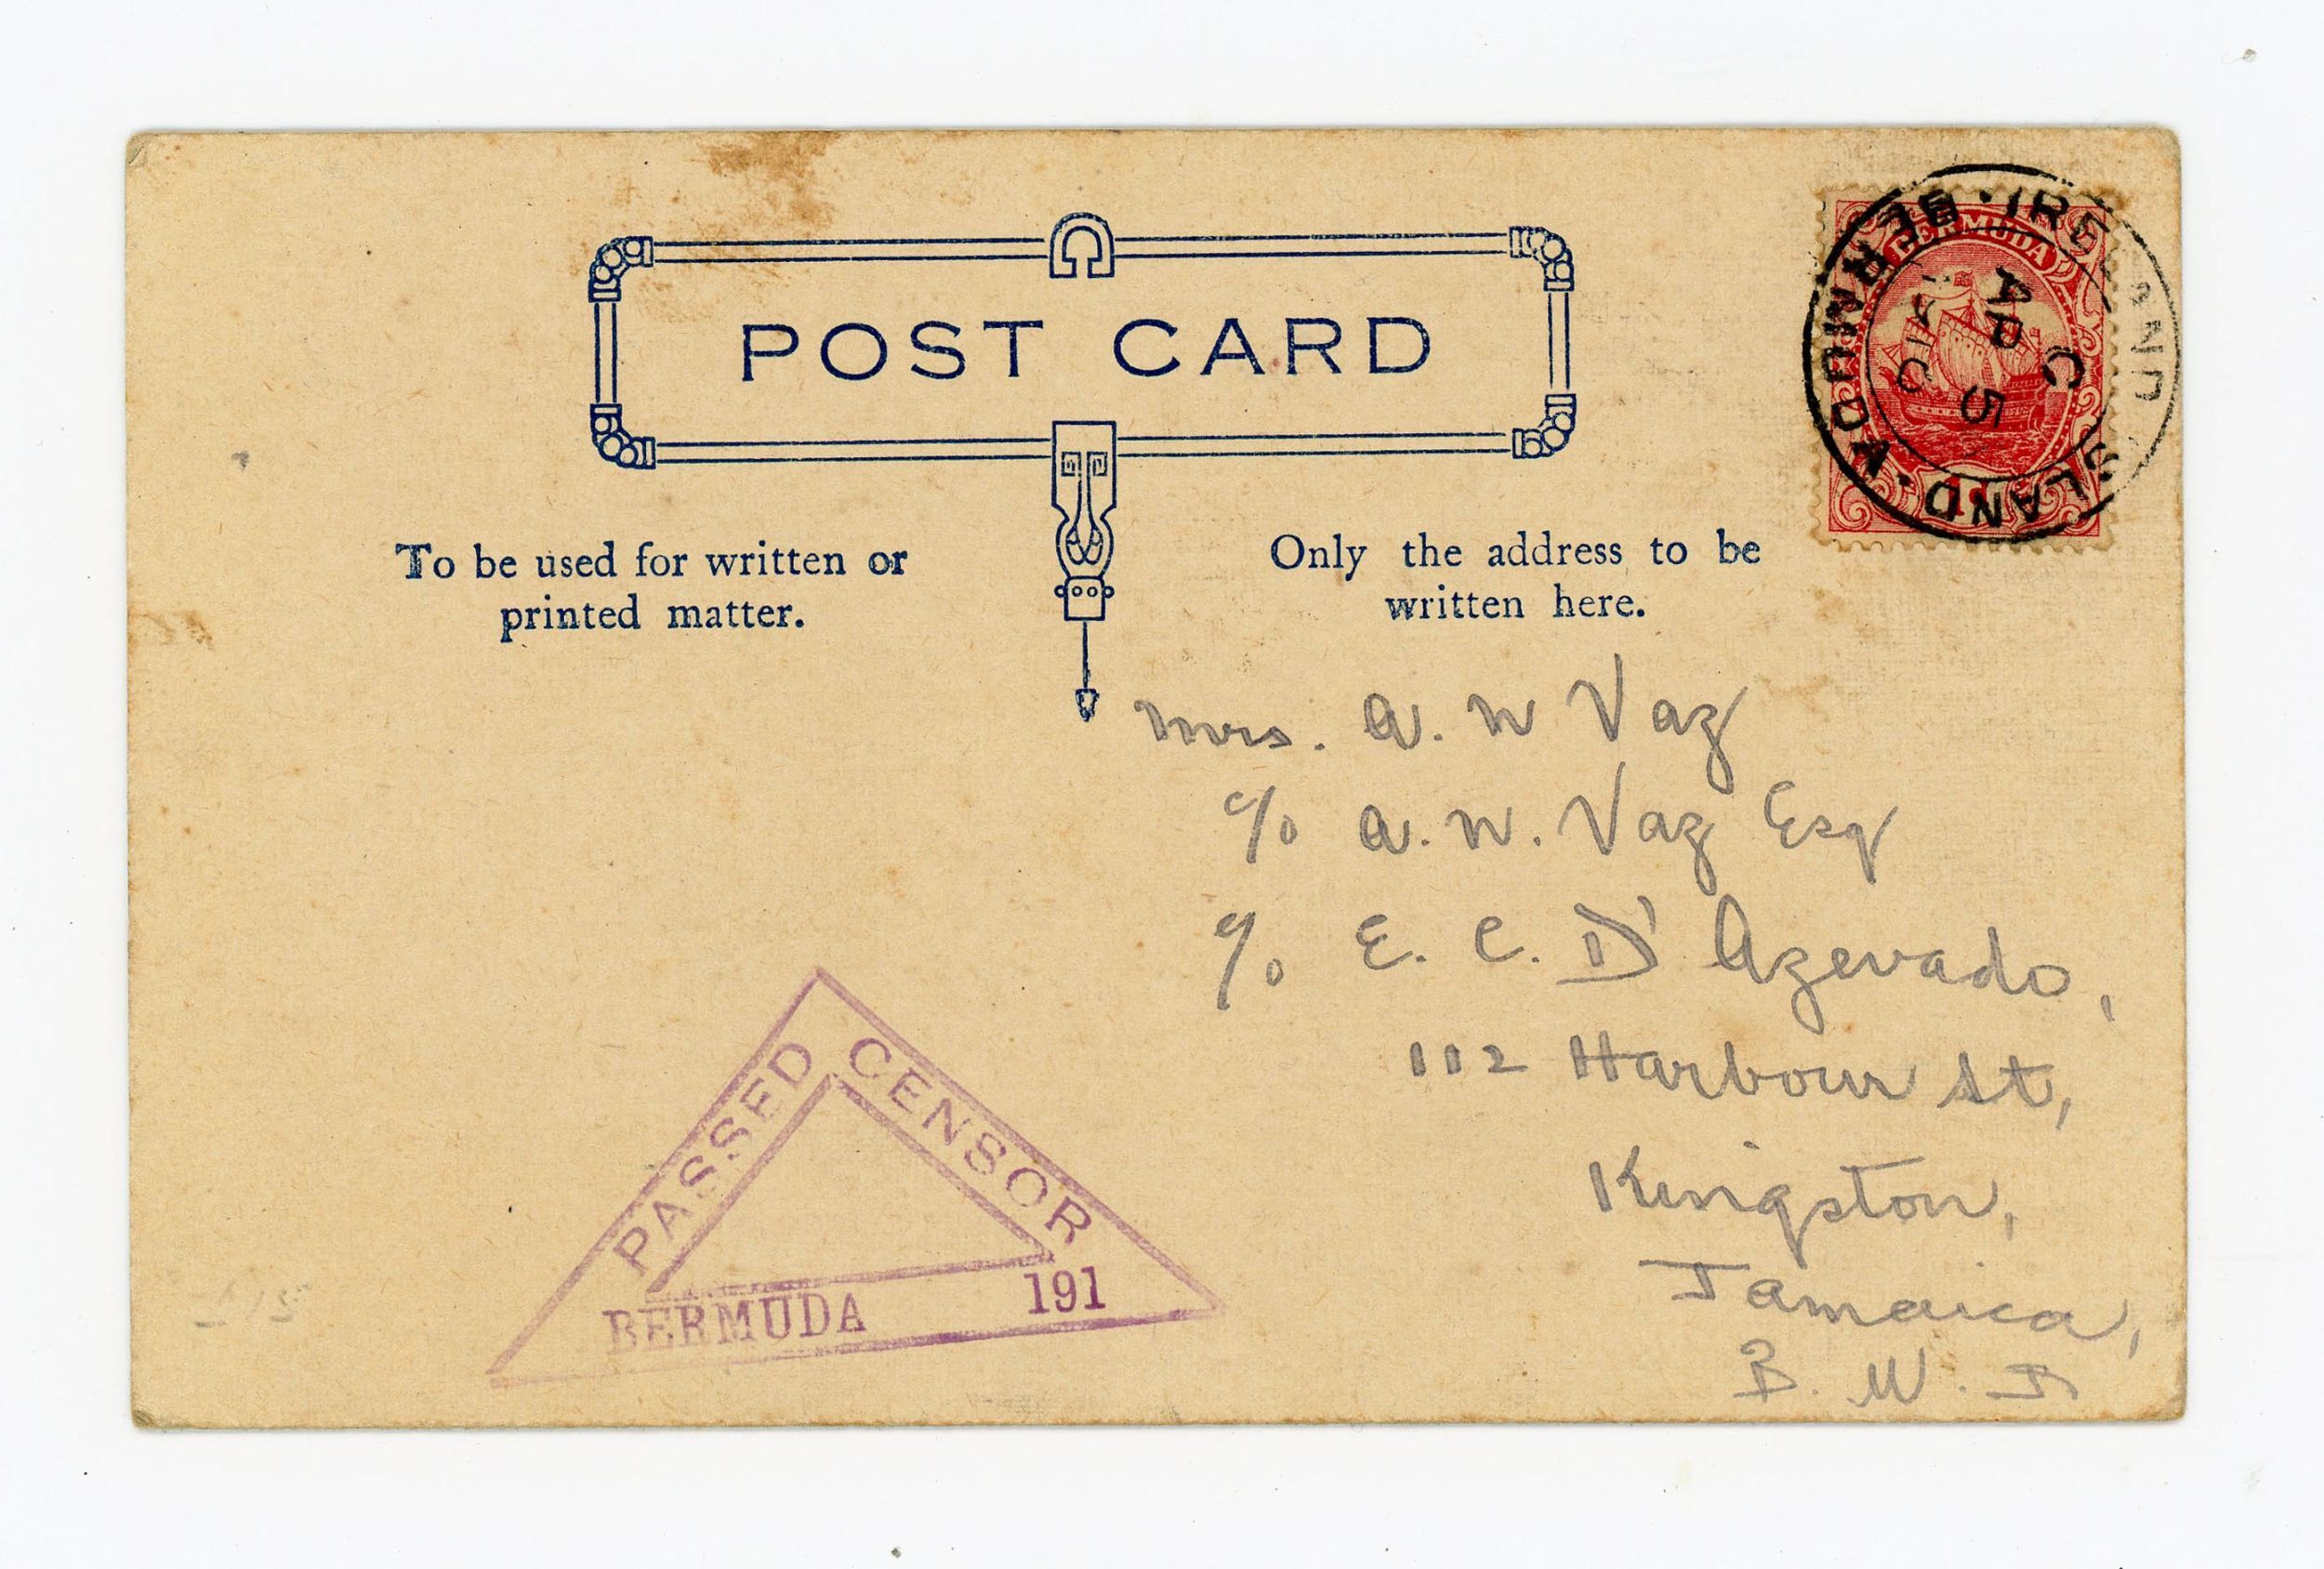 POST CARD
To be used for written or
printed matter.
Only the address to be
written here.
BERMUDA
IRELAND ISLAND · BERMUDA ·
C
AP 5
Mrs. A. N Vaz
c/o A. N. Vaz Esq
c/o E. C. D'Azevado,
112 Harbour St,
Kingston,
Jamaica,
B. W. I
PASSED CENSOR
BERMUDA 191